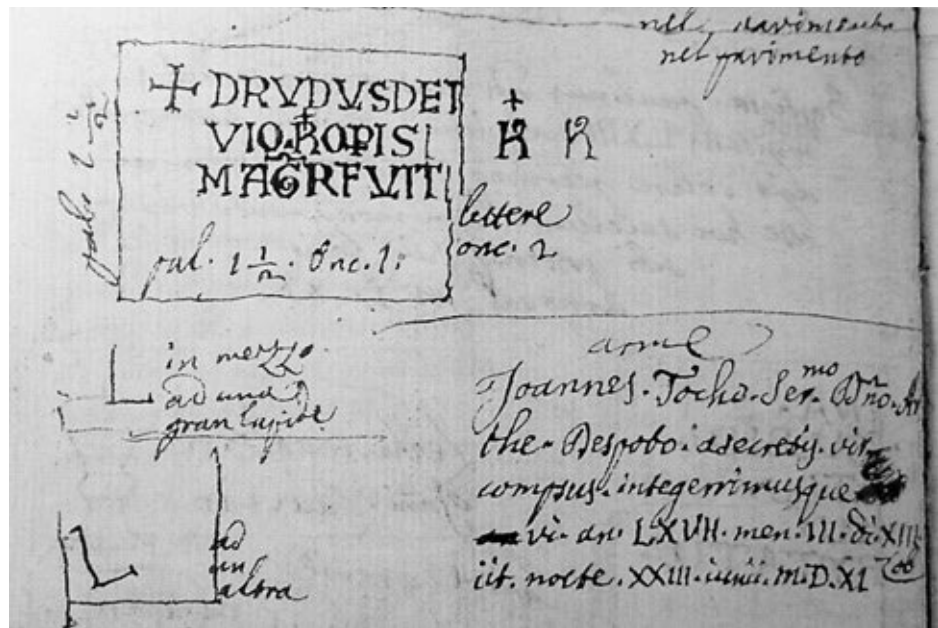 nel pavimento
nel pavimento
+ DRVDVSDEI
VIOROPISI
MAGRFVIT
palmi 1 1/2
pal. 1 1/2. onc. 1.
lettere
onc. 2
in mezzo
ad una
gran lapide
ad
un
altra
arme
Joannes. Tocho. Ser.mo Dno. Ar
the. Despoto. asecretis. vir
compsus. integerrimusque
vi. an. LXVII. men. III. di. XIII
iit. nocte. XXIII. iunii. M.D.XI